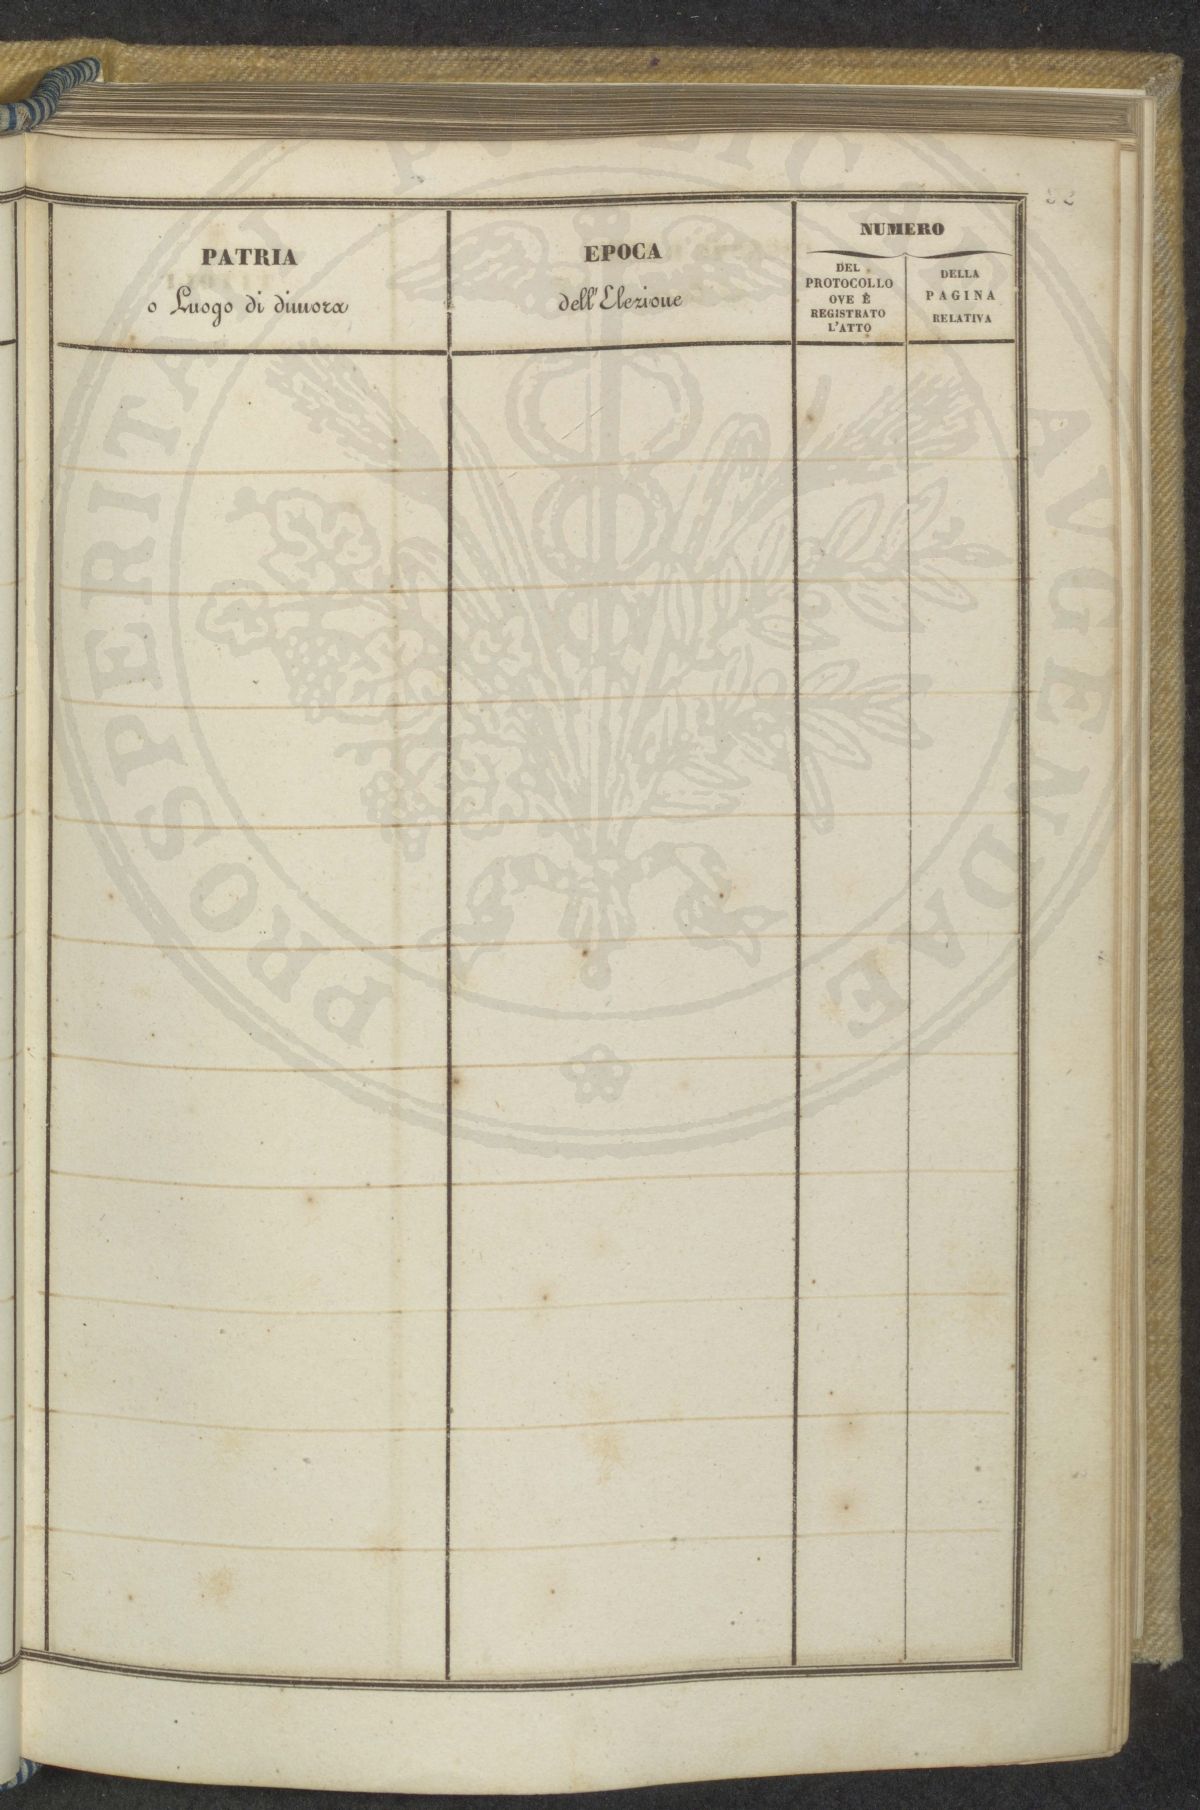 PATRIA
o Luogo di dimora
EPOCA
dell'Elezione
NUMERO
DEL
PROTOCOLLO
OVE È
REGISTRATO
L'ATTO
DELLA
PAGINA
RELATIVA
PROSPERITATI PUBLICAE AVGENDAE